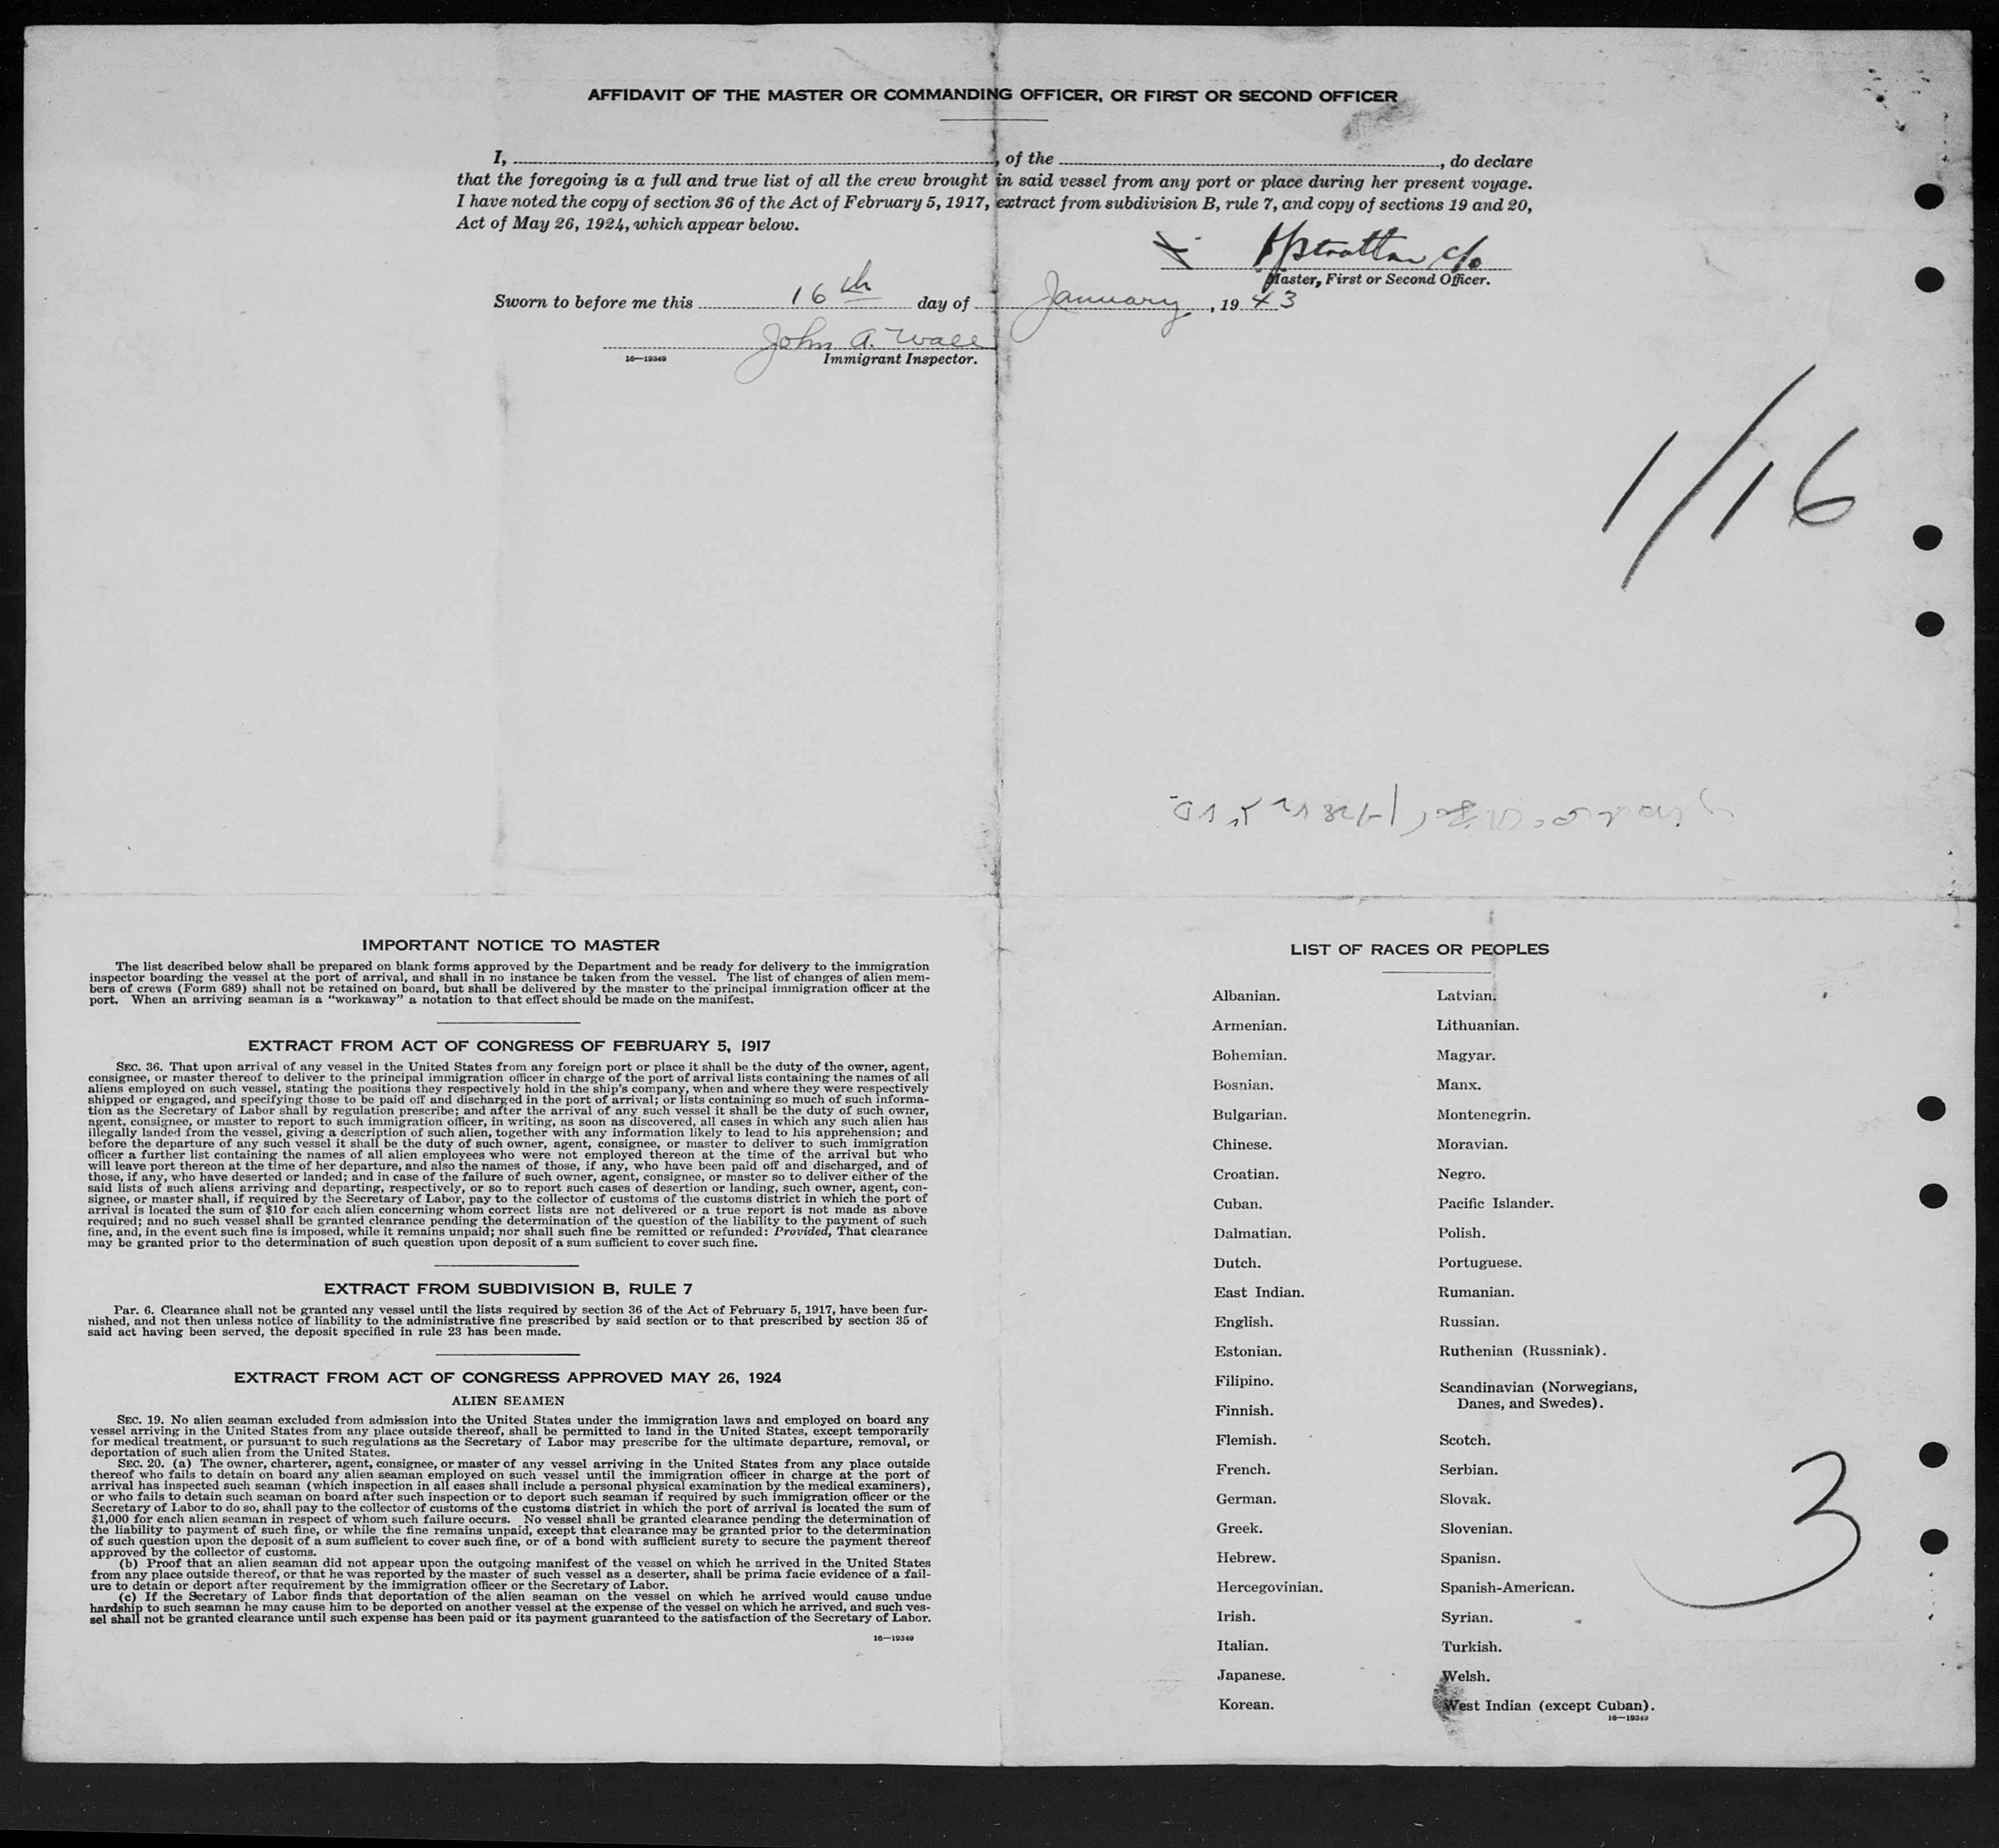 AFFIDAVIT OF THE MASTER OR COMMANDING OFFICER, OR FIRST OR SECOND OFFICER
I, , of the , do declare
that the foregoing is a full and true list of all the crew brought in said vessel from any port or place during her present voyage.
I have noted the copy of section 36 of the Act of February 5, 1917, extract from subdivision B, rule 7, and copy of sections 19 and 20,
Act of May 26, 1924, which appear below.
Stratton c/o
Master, First or Second Officer.
Sworn to before me this 16th day of January, 1943
John A. Wall
16—19349 Immigrant Inspector.
1/16
IMPORTANT NOTICE TO MASTER
The list described below shall be prepared on blank forms approved by the Department and be ready for delivery to the immigration
inspector boarding the vessel at the port of arrival, and shall in no instance be taken from the vessel. The list of changes of alien mem-
bers of crews (Form 689) shall not be retained on board, but shall be delivered by the master to the principal immigration officer at the
port. When an arriving seaman is a "workaway" a notation to that effect should be made on the manifest.
EXTRACT FROM ACT OF CONGRESS OF FEBRUARY 5, 1917
SEC. 36. That upon arrival of any vessel in the United States from any foreign port or place it shall be the duty of the owner, agent,
consignee, or master thereof to deliver to the principal immigration officer in charge of the port of arrival lists containing the names of all
aliens employed on such vessel, stating the positions they respectively hold in the ship's company, when and where they were respectively
shipped or engaged, and specifying those to be paid off and discharged in the port of arrival; or lists containing so much of such informa-
tion as the Secretary of Labor shall by regulation prescribe; and after the arrival of any such vessel it shall be the duty of such owner,
agent, consignee, or master to report to such immigration officer, in writing, as soon as discovered, all cases in which any such alien has
illegally landed from the vessel, giving a description of such alien, together with any information likely to lead to his apprehension; and
before the departure of any such vessel it shall be the duty of such owner, agent, consignee, or master to deliver to such immigration
officer a further list containing the names of all alien employees who were not employed thereon at the time of the arrival but who
will leave port thereon at the time of her departure, and also the names of those, if any, who have been paid off and discharged, and of
those, if any, who have deserted or landed; and in case of the failure of such owner, agent, consignee, or master so to deliver either of the
said lists of such aliens arriving and departing, respectively, or so to report such cases of desertion or landing, such owner, agent, con-
signee, or master shall, if required by the Secretary of Labor, pay to the collector of customs of the customs district in which the port of
arrival is located the sum of $10 for each alien concerning whom correct lists are not delivered or a true report is not made as above
required; and no such vessel shall be granted clearance pending the determination of the question of the liability to the payment of such
fine, and, in the event such fine is imposed, while it remains unpaid; nor shall such fine be remitted or refunded: Provided, That clearance
may be granted prior to the determination of such question upon deposit of a sum sufficient to cover such fine.
EXTRACT FROM SUBDIVISION B, RULE 7
Par. 6. Clearance shall not be granted any vessel until the lists required by section 36 of the Act of February 5, 1917, have been fur-
nished, and not then unless notice of liability to the administrative fine prescribed by said section or to that prescribed by section 35 of
said act having been served, the deposit specified in rule 23 has been made.
EXTRACT FROM ACT OF CONGRESS APPROVED MAY 26, 1924
ALIEN SEAMEN
SEC. 19. No alien seaman excluded from admission into the United States under the immigration laws and employed on board any
vessel arriving in the United States from any place outside thereof, shall be permitted to land in the United States, except temporarily
for medical treatment, or pursuant to such regulations as the Secretary of Labor may prescribe for the ultimate departure, removal, or
deportation of such alien from the United States.
SEC. 20. (a) The owner, charterer, agent, consignee, or master of any vessel arriving in the United States from any place outside
thereof who fails to detain on board any alien seaman employed on such vessel until the immigration officer in charge at the port of
arrival has inspected such seaman (which inspection in all cases shall include a personal physical examination by the medical examiners),
or who fails to detain such seaman on board after such inspection or to deport such seaman if required by such immigration officer or the
Secretary of Labor to do so, shall pay to the collector of customs of the customs district in which the port of arrival is located the sum of
$1,000 for each alien seaman in respect of whom such failure occurs. No vessel shall be granted clearance pending the determination of
the liability to payment of such fine, or while the fine remains unpaid, except that clearance may be granted prior to the determination
of such question upon the deposit of a sum sufficient to cover such fine, or of a bond with sufficient surety to secure the payment thereof
approved by the collector of customs.
(b) Proof that an alien seaman did not appear upon the outgoing manifest of the vessel on which he arrived in the United States
from any place outside thereof, or that he was reported by the master of such vessel as a deserter, shall be prima facie evidence of a fail-
ure to detain or deport after requirement by the immigration officer or the Secretary of Labor.
(c) If the Secretary of Labor finds that deportation of the alien seaman on the vessel on which he arrived would cause undue
hardship to such seaman he may cause him to be deported on another vessel at the expense of the vessel on which he arrived, and such ves-
sel shall not be granted clearance until such expense has been paid or its payment guaranteed to the satisfaction of the Secretary of Labor.
16—19349
LIST OF RACES OR PEOPLES
Albanian.
Armenian.
Bohemian.
Bosnian.
Bulgarian.
Chinese.
Croatian.
Cuban.
Dalmatian.
Dutch.
East Indian.
English.
Estonian.
Filipino.
Finnish.
Flemish.
French.
German.
Greek.
Hebrew.
Hercegovinian.
Irish.
Italian.
Japanese.
Korean.
Latvian.
Lithuanian.
Magyar.
Manx.
Montenegrin.
Moravian.
Negro.
Pacific Islander.
Polish.
Portuguese.
Rumanian.
Russian.
Ruthenian (Russniak).
Scandinavian (Norwegians,
Danes, and Swedes).
Scotch.
Serbian.
Slovak.
Slovenian.
Spanisn.
Spanish-American.
Syrian.
Turkish.
Welsh.
West Indian (except Cuban).
16—19349
3